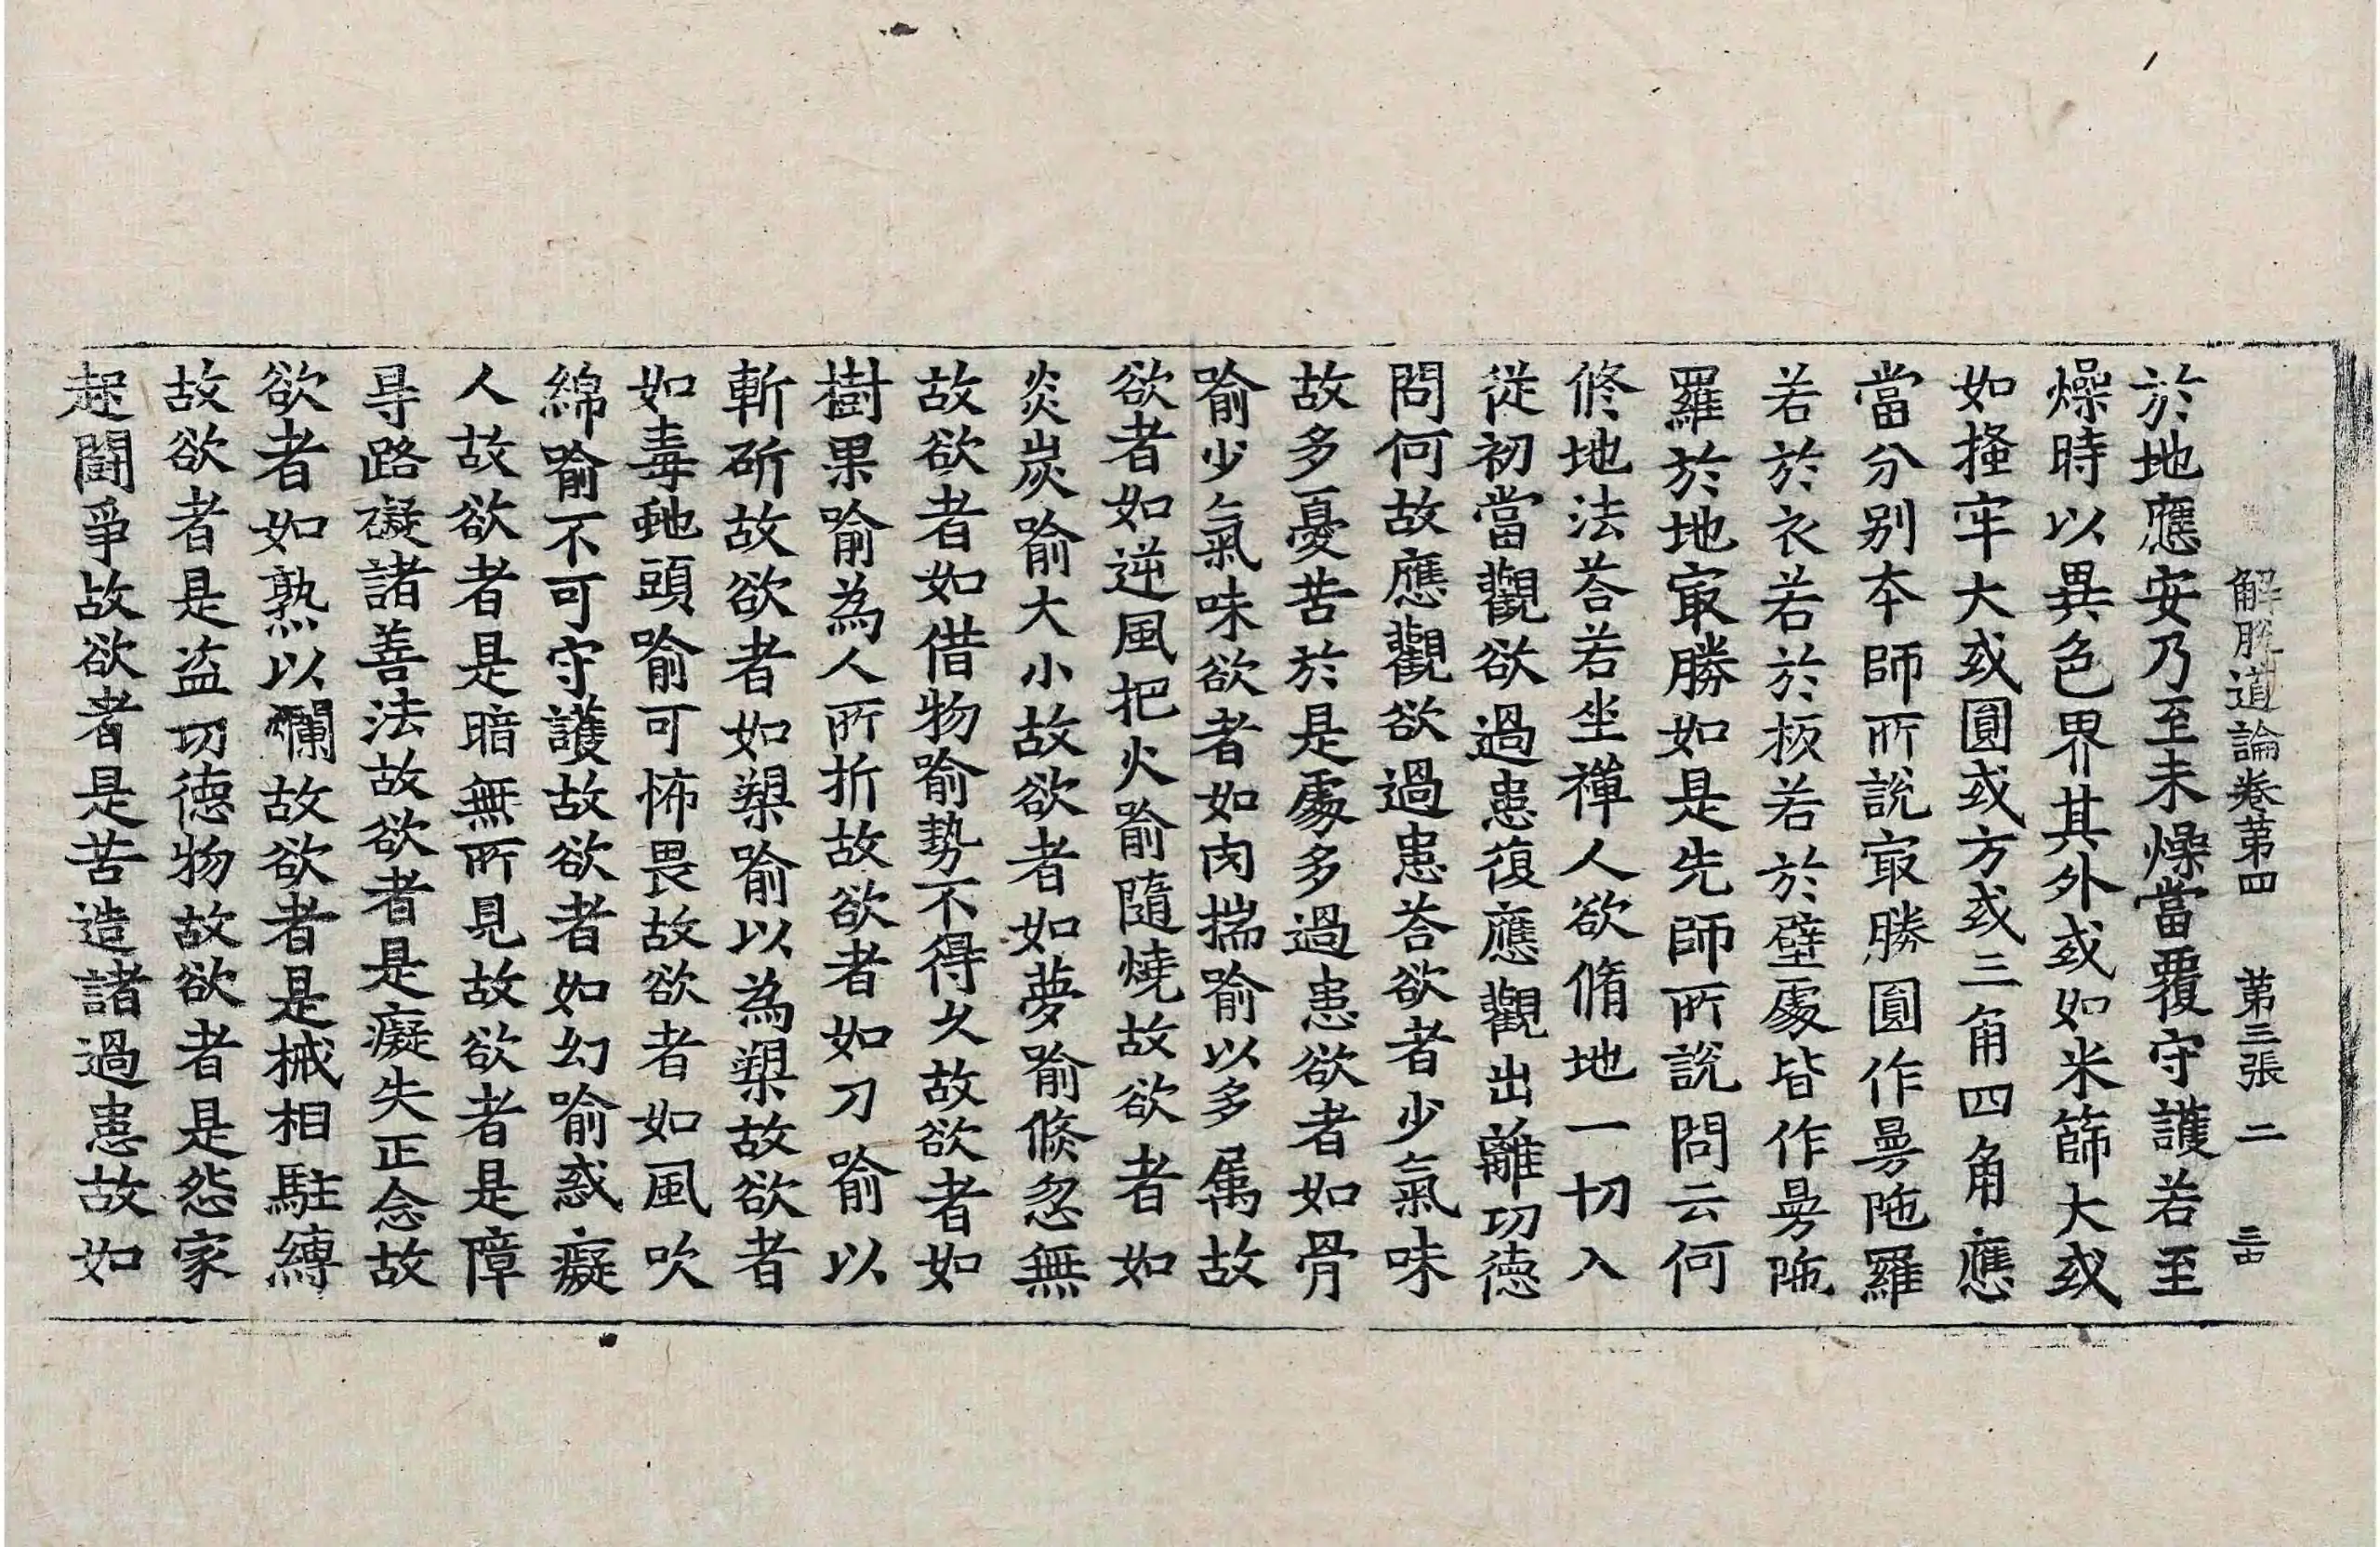 解脫道論卷第四 第三張 二
於地應安乃至未燥當覆守護若至
燥時以異色界其外或如米篩大或
如搔牢大或圓或方或三角四角應
當分別本師所說㝡勝圓作曼陁羅
若於衣若於板若於壁處皆作曼陁
羅於地㝡勝如是先師所說問云何
修地法荅若坐禪人欲脩地一切入
從初當觀欲過患復應觀出離功德
問何故應觀欲過患荅欲者少氣味
故多憂苦於是處多過患欲者如骨
喻少氣味欲者如肉揣喻以多属故
欲者如逆風把火喻隨燒故欲者如
炎炭喻大小故欲者如夢喻倏忽無
故欲者如借物喻勢不得久故欲者如
樹果喻為人所折故欲者如刀喻以
斬斫故欲者如槊喻以為槊故欲者
如毒虵頭喻可怖畏故欲者如風吹
綿喻不可守護故欲者如幻喻惑癡
人故欲者是暗無所見故欲者是障
㝵路礙諸善法故欲者是癡失正念故
欲者如熟以爛故欲者是械相駐縛
故欲者是盜功德物故欲者是怨家
起鬪爭故欲者是苦造諸過患故如